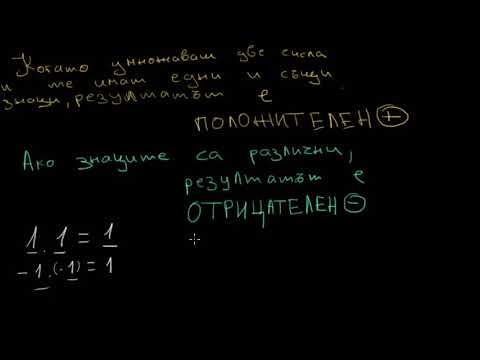 Когато умножаваш две числа
и те имат едни и същи
знаци, резултатът е
ПОЛОЖИТЕЛЕН +
Ако знаците са различни,
резултатът е
ОТРИЦАТЕЛЕН -
1 . 1 = 1
-1 . (-1) = 1